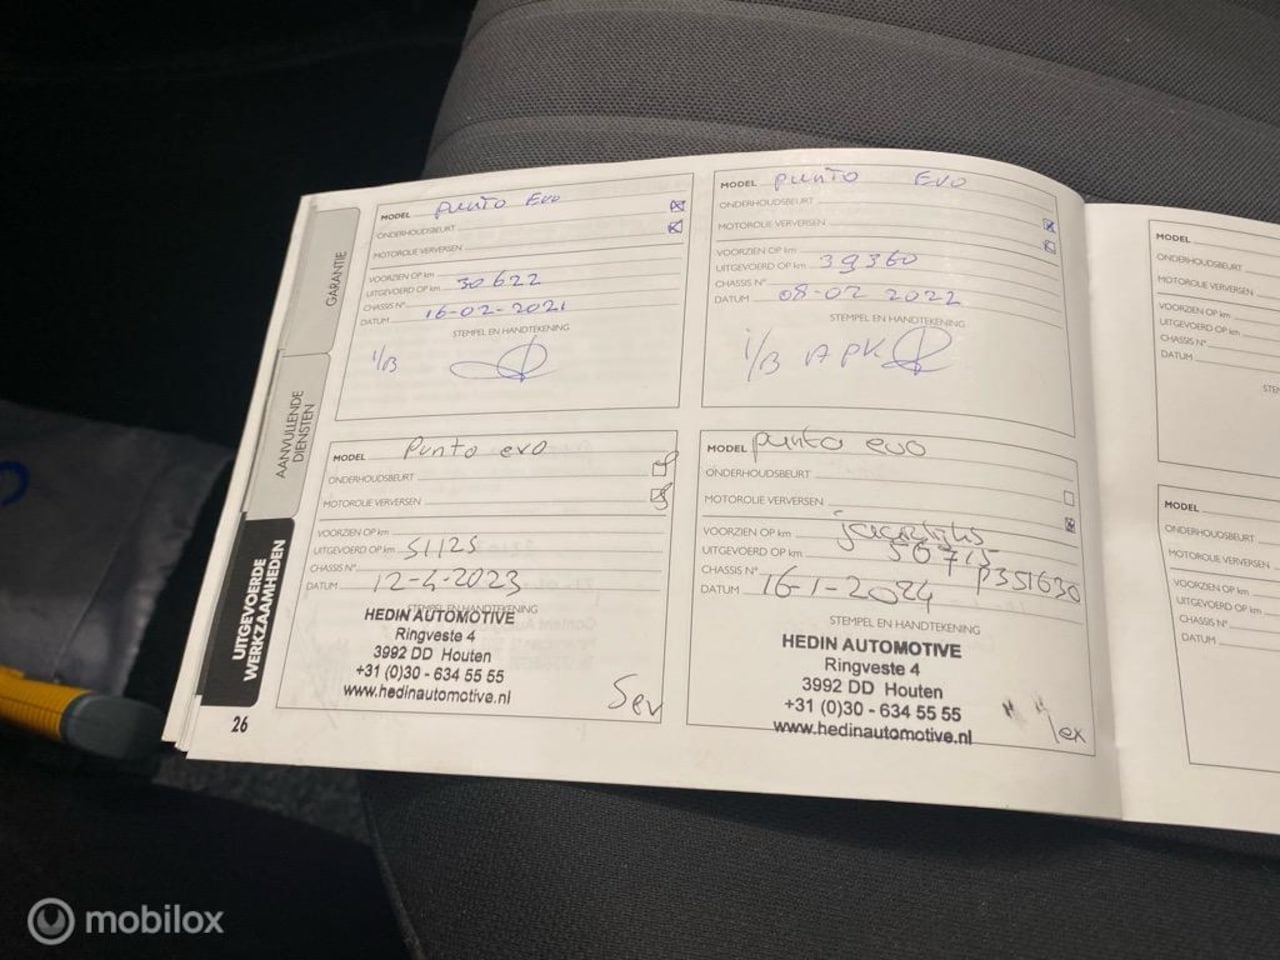 GARANTIE
AANVULLENDE DIENSTEN
UITGEVOERDE WERKZAAMHEDEN
26
MODEL Punto Evo
ONDERHOUDSBEURT
MOTOROLIE VERVERSEN
VOORZIEN OP km
UITGEVOERD OP km 30622
CHASSIS N°
DATUM 16-02-2021
STEMPEL EN HANDTEKENING
i/B
MODEL Punto Evo
ONDERHOUDSBEURT
MOTOROLIE VERVERSEN
VOORZIEN OP km
UITGEVOERD OP km 39360
CHASSIS N°
DATUM 08-02 2022
STEMPEL EN HANDTEKENING
i/B APK
MODEL Punto evo
ONDERHOUDSBEURT
MOTOROLIE VERVERSEN
VOORZIEN OP km
UITGEVOERD OP km 51125
CHASSIS N°
DATUM 12-4-2023
STEMPEL EN HANDTEKENING
HEDIN AUTOMOTIVE
Ringveste 4
3992 DD Houten
+31 (0)30 - 634 55 55
www.hedinautomotive.nl
MODEL punto evo
ONDERHOUDSBEURT
MOTOROLIE VERVERSEN
VOORZIEN OP km jaarlijks
UITGEVOERD OP km 56715
CHASSIS N° P351630
DATUM 16-1-2024
STEMPEL EN HANDTEKENING
HEDIN AUTOMOTIVE
Ringveste 4
3992 DD Houten
+31 (0)30 - 634 55 55
www.hedinautomotive.nl
MODEL
ONDERHOUDSBEURT
MOTOROLIE VERVERSEN
VOORZIEN OP km
UITGEVOERD OP km
CHASSIS N°
DATUM
MODEL
ONDERHOUDSBEURT
MOTOROLIE VERVERSEN
VOORZIEN OP km
UITGEVOERD OP km
CHASSIS N°
DATUM
mobilox